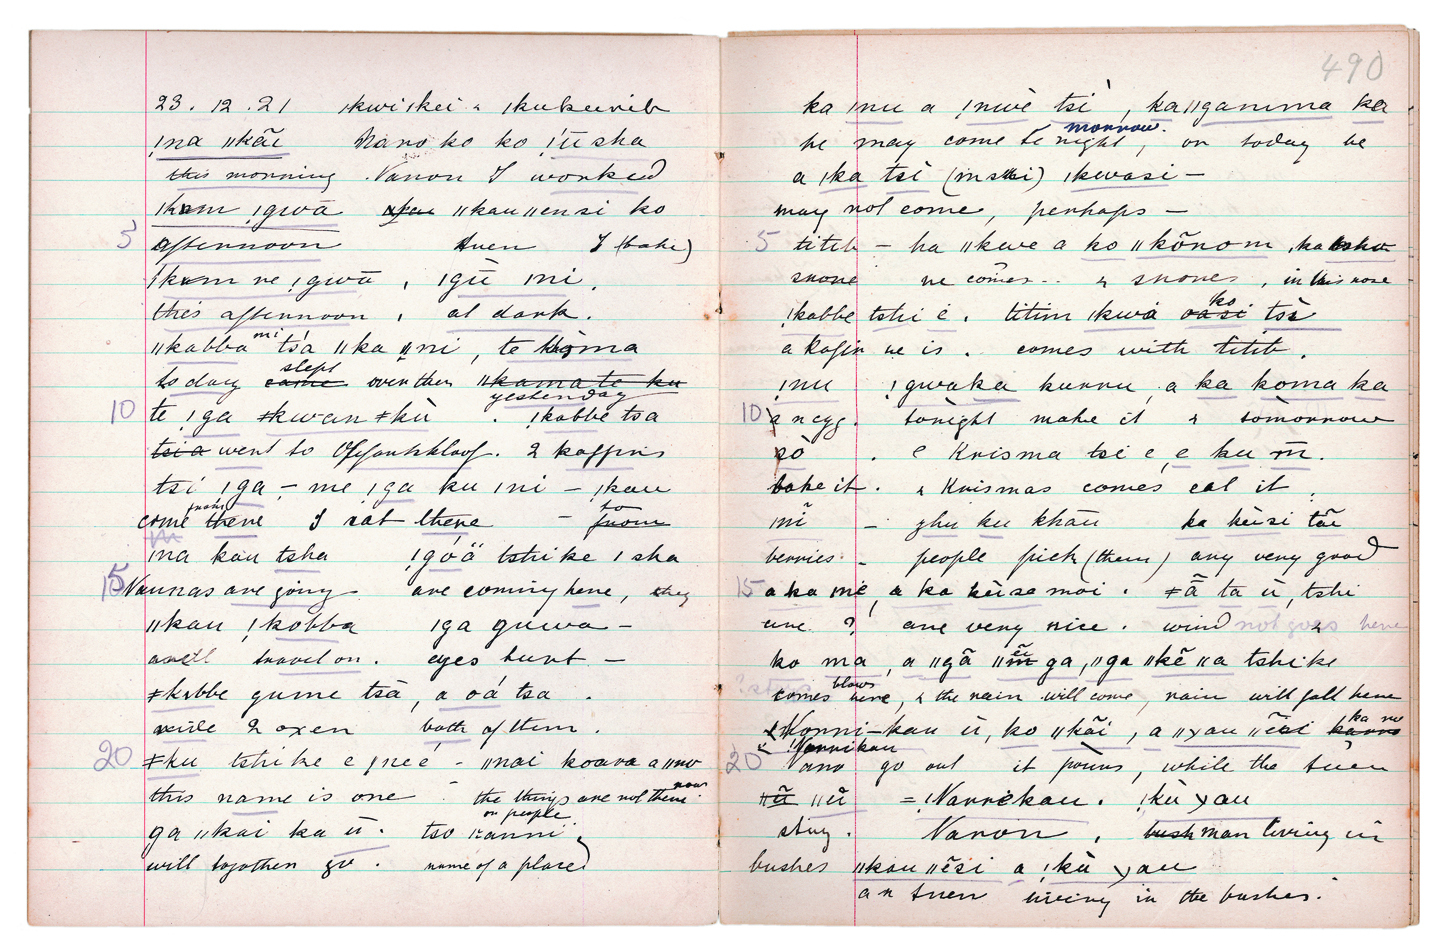 23. 12. 21 ǀkwiǀkei & ǀkukurib
ǃna ǁkãi Naro ko ko ǀũ sha
this morning Naron I worked
ǀkam ǃgwā ǁkauǁensi ko
5 afternoon Auen I (bake)
ǀkam ne ǃgwā, ǀgū ǀni.
this afternoon, at dark.
ǁkabba mi tsá ǁka ǁni, te koma
today came slept over there ǁkamate ku yesterday
10 te ǃga ǂkwan ǂkù . ǃkabbe tsa
tsia went to Olifantskloof. 2 kaffirs
tsi ǃga - me ǃga ku ǀni - ǀkau
come there from I sat there - from to
ma kau tsha ǃgóä tshike ǀsha
15 Naunas are going are coming here, they
ǁkau ǃkobba ǀga guwa -
will travel on. eyes hurt -
ǂkabbe gume tsà, a oá tsa .
ride 2 oxen both of them.
20 ǂku tshike e ǀneé - ǁnai koara aǁno
this name is one the things are not there now
ga ǁkai ka ū. tso ǀanni
will together go. name of a place or people
490
ka ǀnu a ǃnwè tsi, kaǁganima ka
he may come to night morrow, or today he
a ǀka tsi (mski) ǀkwasi -
may not come, perhaps -
5 titib - ha ǁkwe a ko ǁkõnom
snore he comes.. & snores, in his nose
ǃkabbe tshi é. titim ǀkwà oasi ko tsi
a kafir he is. comes with titib.
ǃnu ǃgwaka kurru, a ka koma ka
10 a negg. tonight make it & tomorrow
sò . e Krisma tsi e, e ku m̄.
bake it. & Krismas comes eat it.
mĩ - ghu ku khāu ka kùsi tāi
berries - people pick (them) any very good
15 a ka mé, a ka kùsa moi. ǂã ta ù, tshi
are ? are very nice. wind not goes & here
ko ma, a ǁgā ǁm̄ ẽi ga, ǁga ǁkē ǁa tshike
comes blows here, & the rain will come, rain will fall here
Nonni-kau ū, ko ǁkãi, a ǁχau ǁẽisi
20 Nannikau ana go out it pours, while the Auen
ǁũ ǁũ = ǃNarrekau. ǃkù χau
stay. Naron, bushman living in
bushes ǁkau ǁẽsi a ǃkù χau
an Auen living in the bushes.